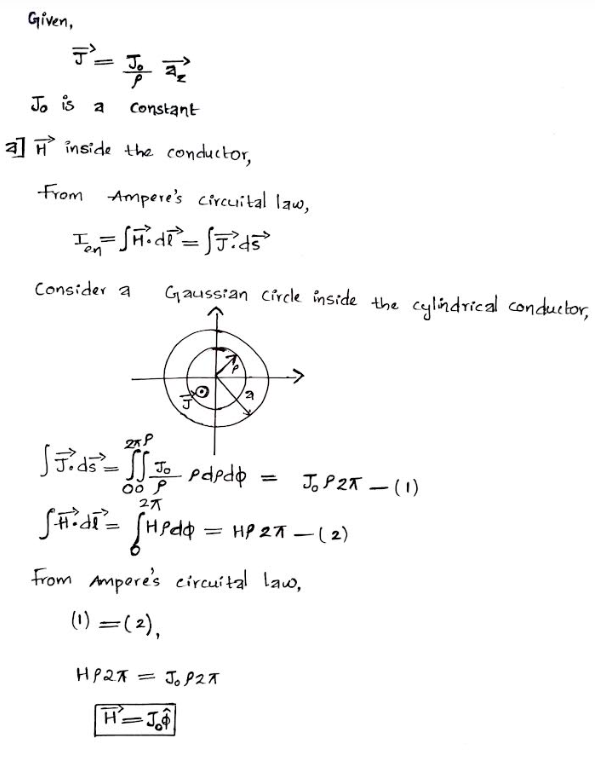 Given,
J⃗ = J₀/ρ a⃗_z
J₀ is a constant
a] H⃗ inside the conductor,
From Ampere's circuital law,
I_en = ∫H⃗·dl⃗ = ∫J⃗·ds⃗
Consider a Gaussian circle inside the cylindrical conductor,
ρ
J⃗ a
∫J⃗·ds⃗ = ∫₀^2π ∫₀^ρ J₀/ρ ρdρdφ = J₀ρ2π — (1)
∫H⃗·dl⃗ = ∫₀^2π Hρdφ = Hρ2π — (2)
From Ampere's circuital law,
(1) = (2),
Hρ2π = J₀ρ2π
H⃗ = J₀φ̂